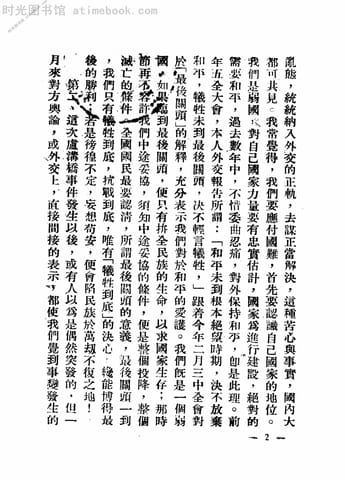 时光图书馆 atimebook.com
亂態，統統納入外交的正軌，去謀正當解決，這種苦心與事實，國內大
都可共見。我常覺得，我們要應付國難，首先要認識自己國家的地位。
我們是弱國，對自己國家力量要有忠實估計，國家爲進行建設，絕對的
需要和平，過去數年中，不惜委曲忍痛，對外保持和平，卽是此理。前
年五全大會，本人外交報告所謂：「和平未到根本絕望時期，決不放棄
和平，犧牲未到最後關頭，決不輕言犧牲，」跟着今年二月三中全會對
於「最後關頭」的解釋，充分表示我們對於和平的愛護。我們既是一個弱
國，如果臨到最後關頭，便只有拚全民族的生命，以求國家生存；那時
節再不容許我們中途妥協，須知中途妥協的條件，便是整個投降，整個
滅亡的條件。全國國民最要認清，所謂最後關頭的意義，最後關頭一到
，我們只有犧牲到底，抗戰到底，唯有「犧牲到底」的決心，纔能博得最
後的勝利；若是徬徨不定，妄想苟安，便會陷民族於萬刧不復之地！
第二，這次盧溝橋事件發生以後，或有人以爲是偶然突發的，但一
月來對方輿論，或外交上，直接間接的表示，都使我們覺到事變發生的
— 2 —